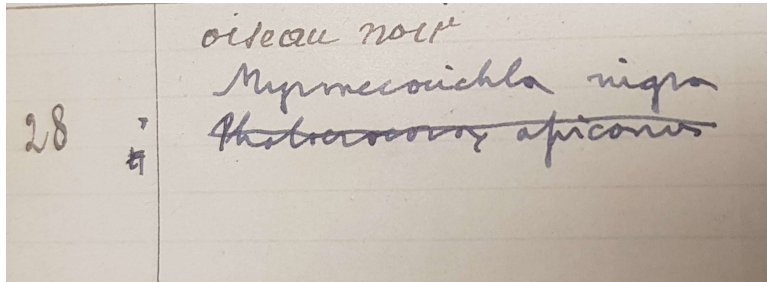 oiseau noir
Myrmecocichla nigra
28 " Phalacrocorax africanus